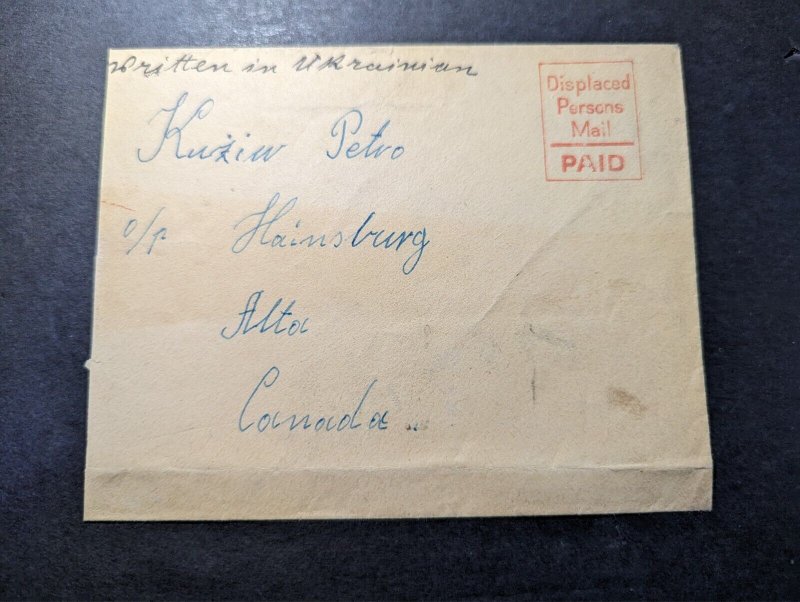 Written in Ukrainian
Displaced
Persons
Mail
PAID
Kużiw Petro
o/p Hainsburg
Alta
Canada